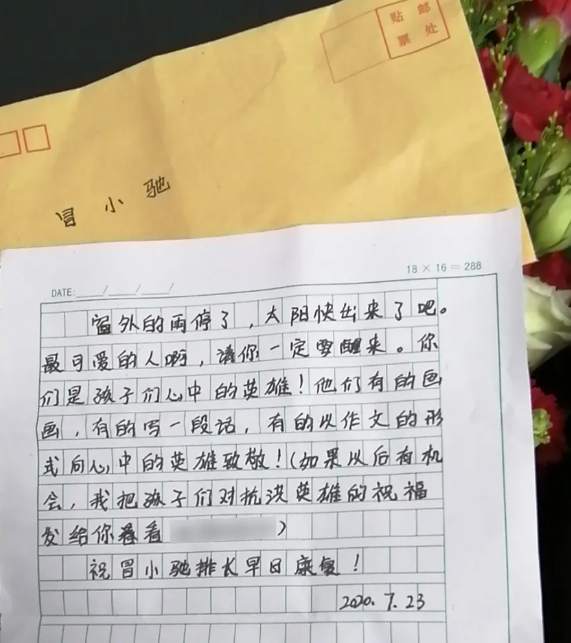 贴 邮
票 处
冒小驰
18 × 16 = 288
DATE: / / /
窗外的雨停了，太阳快出来了吧。
最可爱的人啊，请你一定要醒来。你
们是孩子们心中的英雄！他们有的画
画，有的写一段话，有的以作文的形
式向心中的英雄致敬！（如果以后有机
会，我把孩子们对抗洪英雄的祝福
发给你看看）
祝冒小驰排长早日康复！
2020.7.23